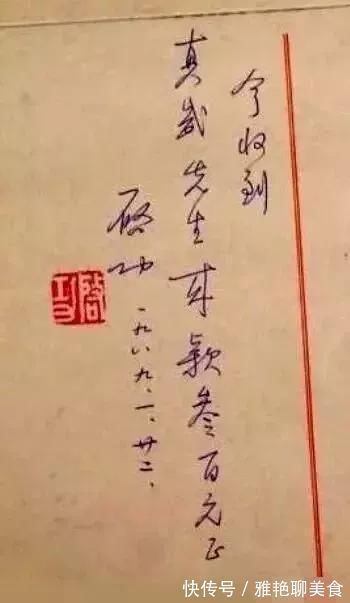 今收到
真威先生来款叁百元正
啓功 一九八九、一、廿二、
啓功
快传号 / 雅艳聊美食